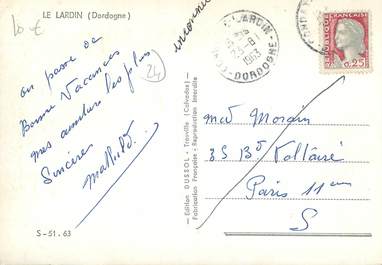 LE LARDIN (Dordogne)
10 €
24
inconnu
on passe de
Bonne Vacances
mes amitiés les plus
Sincères
LE LARDIN
1963
DORDOGNE
RÉPUBLIQUE FRANÇAISE
0,25
Md Morain
35 Bd Voltaire
Paris 11em
S
— Edition DUSSOL - Trouville (Calvados) —
Fabrication Française - Reproduction Interdite
S-51.63